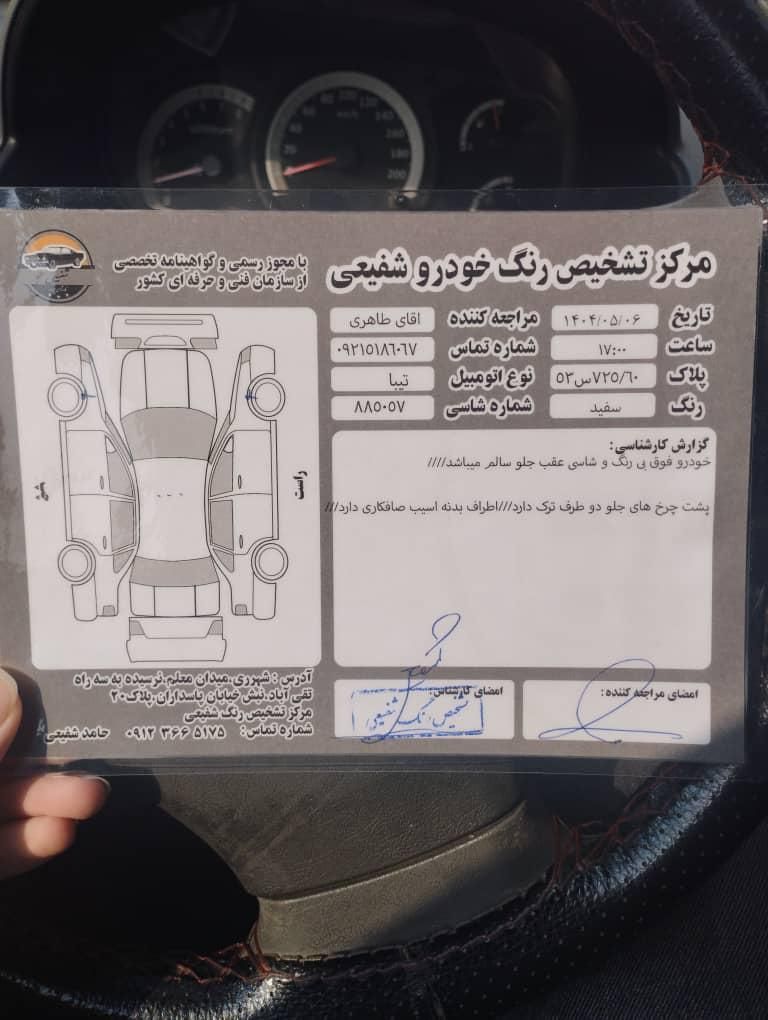 مرکز تشخیص رنگ خودرو شفیعی
با مجوز رسمی و گواهینامه تخصصی
از سازمان فنی و حرفه ای کشور
تاریخ ۱۴۰۴/۰۵/۰۶ مراجعه کننده اقای طاهری
ساعت ۱۷:۰۰ شماره تماس ۰۹۲۱۵۱۸۶۰۶۷
پلاک ۵۳س۷۲۵/۶۰ نوع اتومبیل تیبا
رنگ سفید شماره شاسی ۸۸۵۰۵۷
گزارش کارشناسی:
خودرو فوق بی رنگ و شاسی عقب جلو سالم میباشد////
پشت چرخ های جلو دو طرف ترک دارد///اطراف بدنه اسیب صافکاری دارد///
راست
امضای مراجعه کننده:
امضای کارشناس:
تشخیص رنگ شفیعی
آدرس : شهرری.میدان معلم.نرسیده به سه راه
تقی آباد.نبش خیابان پاسداران.پلاک۲۰
مرکز تشخیص رنگ شفیعی
شماره تماس: ۰۹۱۲ ۳۶۶ ۵۱۷۵ حامد شفیعی